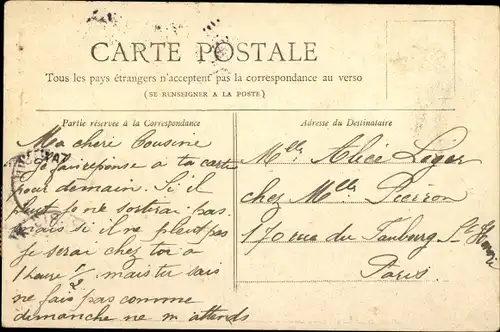 CARTE POSTALE
Tous les pays étrangers n'acceptent pas la correspondance au verso
(SE RENSEIGNER A LA POSTE)
Partie réservée à la Correspondance
Ma chère Cousine
Je fais réponse à ta carte
pour demain. Si il
pleut je ne sortirai pas
mais si il ne pleut pas
je serai chez toi a
1 heure 1/2 mais tu sais
ne fais pas comme
dimanche ne m'attends
Adresse du Destinataire
Mlle Alice Leger
chez Mlle Pierron
170 rue du Faubourg St Honoré
Paris